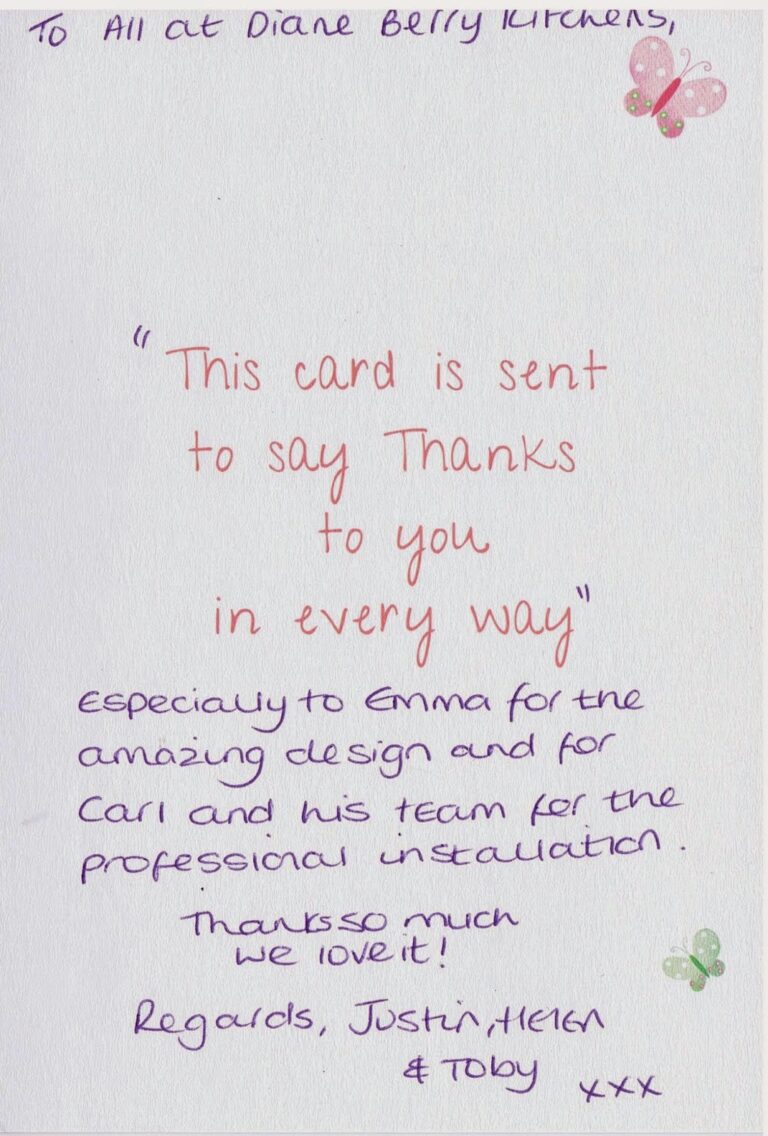 To All at Diane Berry Kitchens,
"This card is sent
to say Thanks
to you
in every way"
Especially to Emma for the
amazing design and for
Carl and his team for the
professional installation.
Thanks so much
we love it!
Regards, Justin, Helen
& Toby xxx